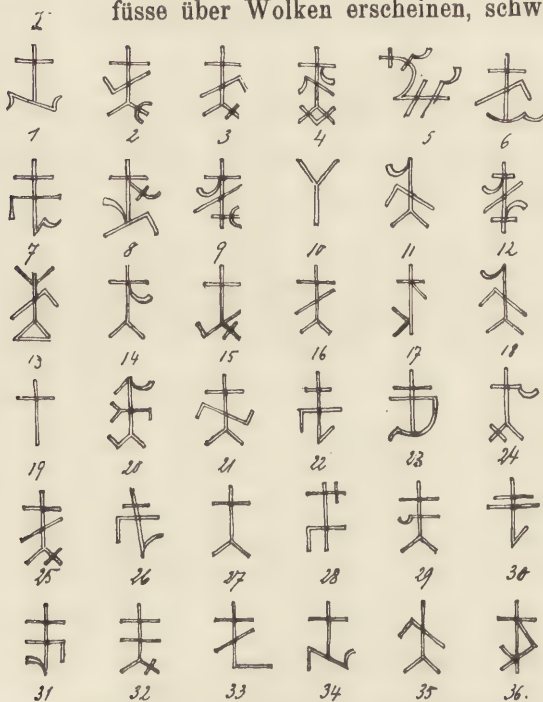 füsse über Wolken erscheinen, schw
I
1 2 3 4 5 6
7 8 9 10 11 12
13 14 15 16 17 18
19 20 21 22 23 24
25 26 27 28 29 30
31 32 33 34 35 36.